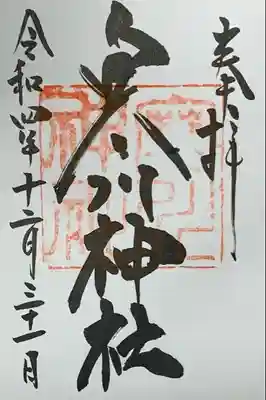 奉拝
川神社
令和四年十二月三十一日